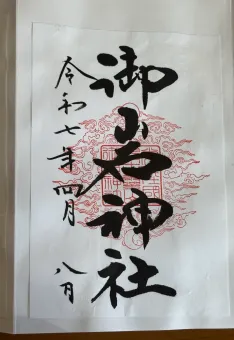 御岩神社
令和七年四月八日